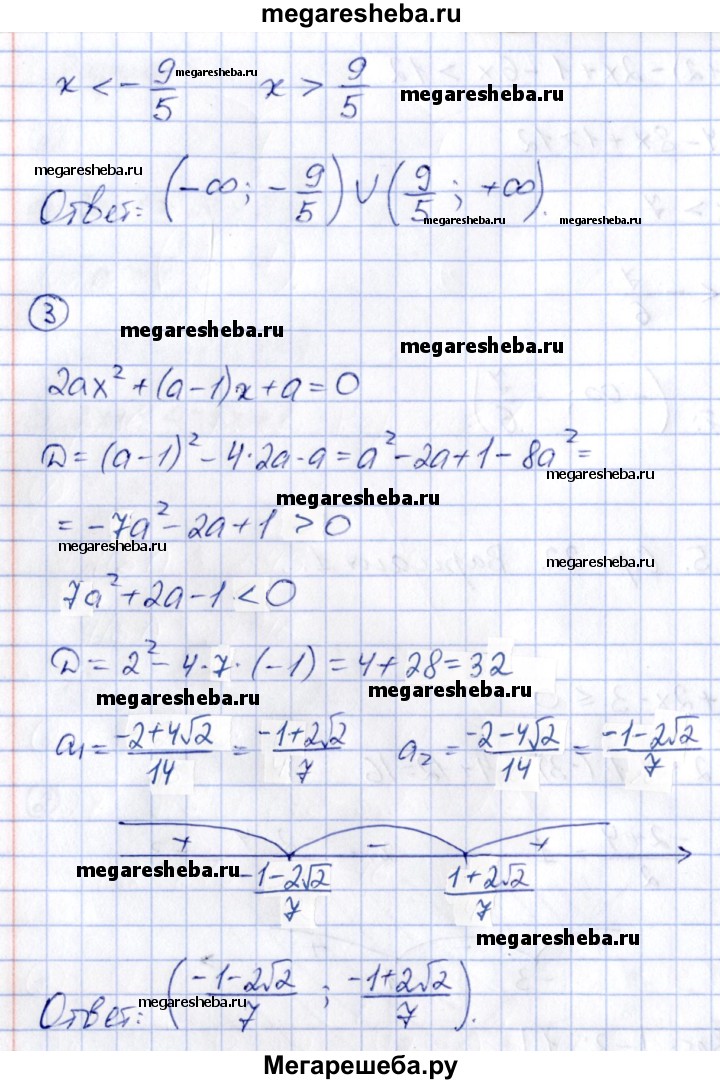 megaresheba.ru
x < -9/5 megaresheba.ru x > 9/5 megaresheba.ru
megaresheba.ru
Ответ: (-∞; -9/5) ∪ (9/5; +∞).
megaresheba.ru megaresheba.ru
3
megaresheba.ru megaresheba.ru
2ax² + (a-1)x + a = 0
D = (a-1)² - 4·2a·a = a² - 2a + 1 - 8a² =
megaresheba.ru megaresheba.ru
= -7a² - 2a + 1 > 0
megaresheba.ru megaresheba.ru
7a² + 2a - 1 < 0
D = 2² - 4·7·(-1) = 4 + 28 = 32
megaresheba.ru megaresheba.ru
a₁ = (-2+4√2)/14 = (-1+2√2)/7 a₂ = (-2-4√2)/14 = (-1-2√2)/7
+ - +
megaresheba.ru
(-1-2√2)/7 (1+2√2)/7
megaresheba.ru
Ответ: ((-1-2√2)/7 ; (-1+2√2)/7).
megaresheba.ru megaresheba.ru
Мегарешеба.ру